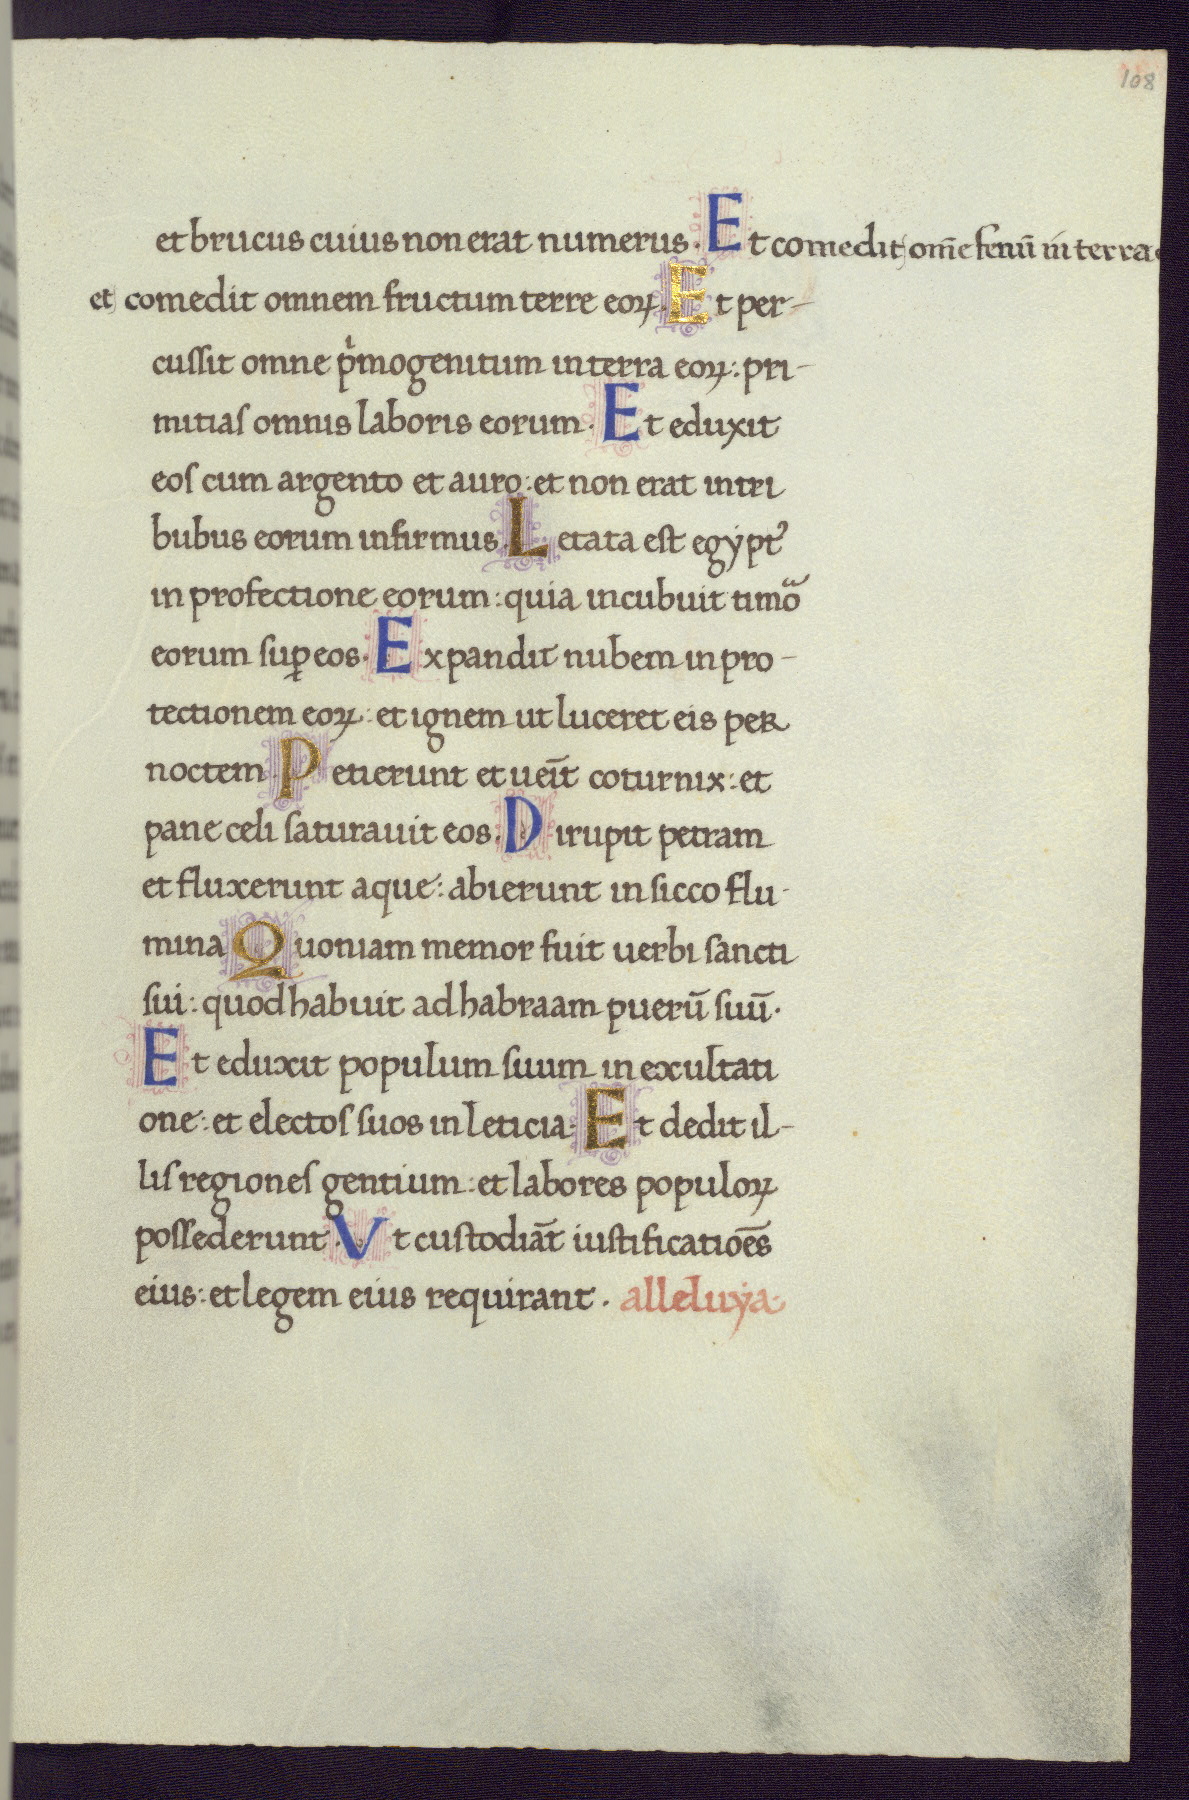 108
et brucus cuius non erat numerus. Et comedit om̄e fenū in terra
et comedit omnem fructum terre eoꝝ. Et per-
cussit omne pͥmogenitum in terra eoꝝ: pri-
mitias omnis laboris eorum. Et eduxit
eos cum argento et auro: et non erat in tri
bubus eorum infirmus. Letata est egẏptꝰ
in profectione eorum: quia incubuit timoᷓ
eorum suꝑ eos. Expandit nubem in pro-
tectionem eoꝝ: et ignem ut luceret eis per
noctem. Petierunt et ueīt coturnix: et
pane celi saturauit eos. Dirupit petram
et fluxerunt aque: abierunt in sicco flu-
mina. Quoniam memor fuit uerbi sancti
sui: quod habuit ad habraam puerū suū.
Et eduxit populum suum in exultati
one: et electos suos in leticia. Et dedit il-
lis regiones gentium: et labores populoꝝ
possederunt. Vt custodiāt iustificatiōes
eius: et legem eius requirant. alleluẏa.